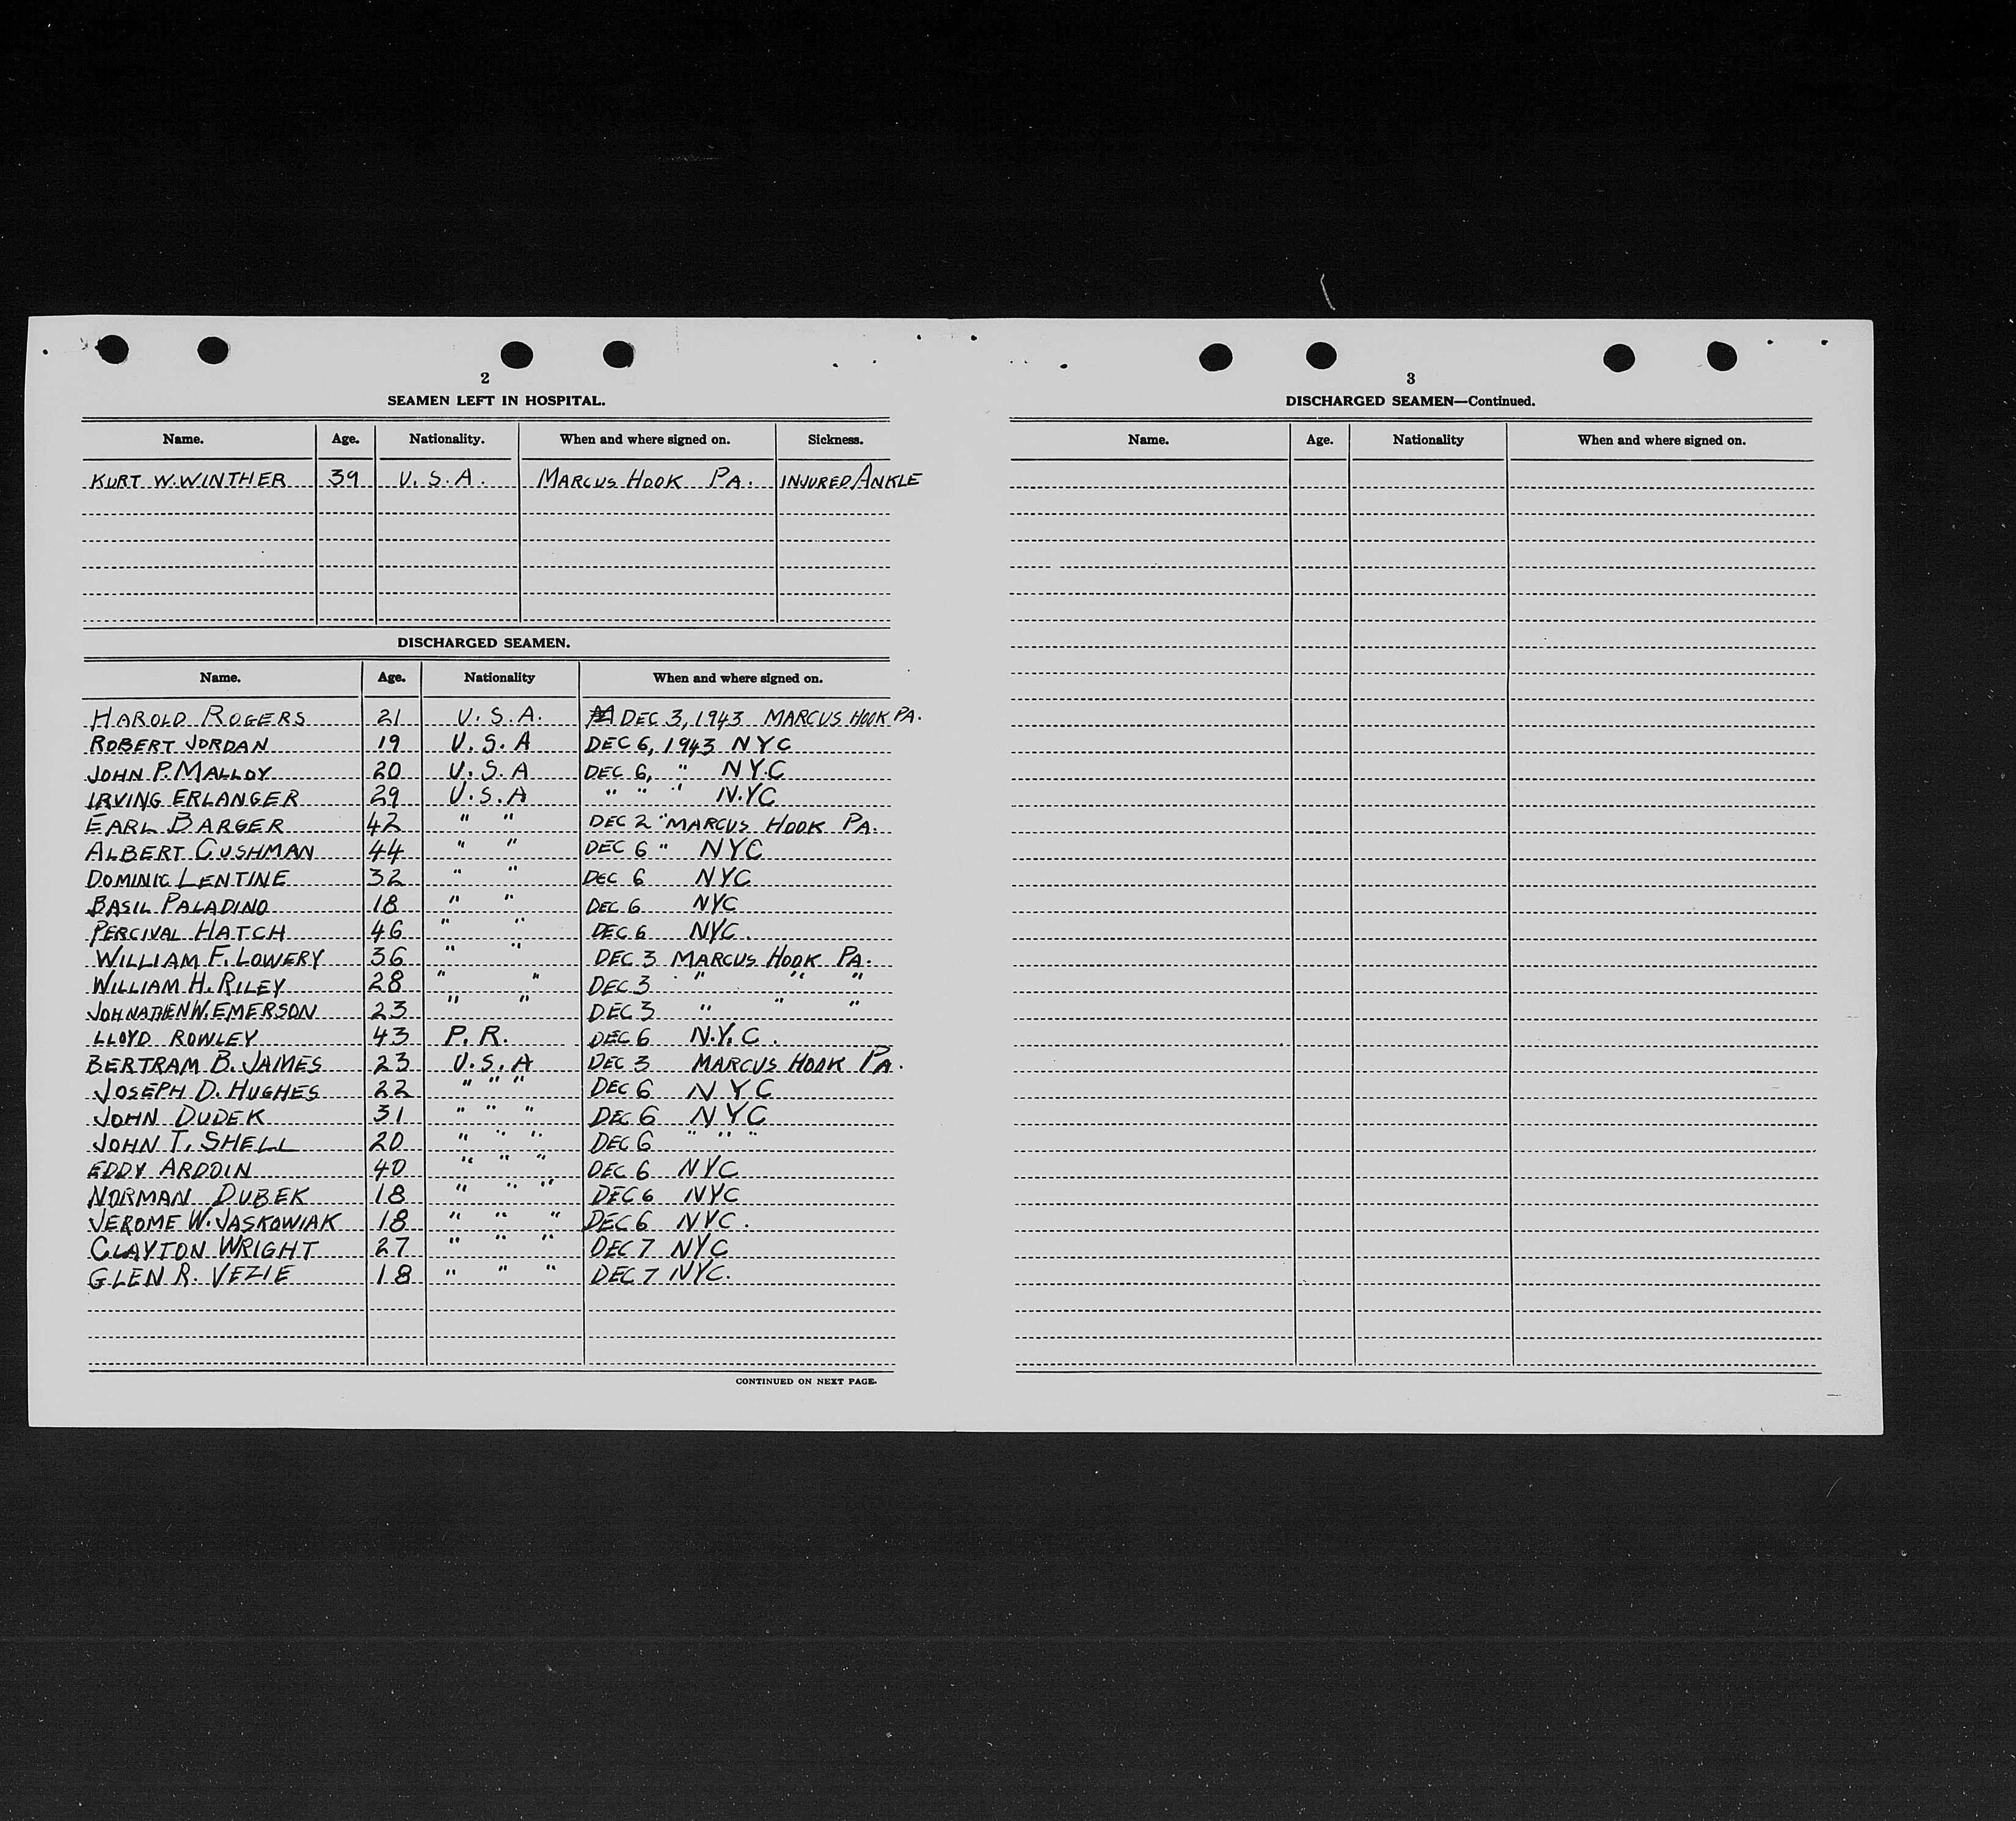 2
SEAMEN LEFT IN HOSPITAL.
Name. Age. Nationality. When and where signed on. Sickness.
KURT W. WINTHER 39 U.S.A. MARCUS HOOK PA. INJURED ANKLE
DISCHARGED SEAMEN.
Name. Age. Nationality When and where signed on.
HAROLD ROGERS 21 U.S.A. DEC 3, 1943 MARCUS HOOK PA.
ROBERT JORDAN 19 U.S.A DEC 6, 1943 NYC
JOHN P. MALLOY 20 U.S.A DEC 6, " NY.C
IRVING ERLANGER 29 U.S.A " " " N.YC
EARL BARGER 42 " " DEC 2 " MARCUS HOOK PA.
ALBERT CUSHMAN 44 " " DEC 6 " NYC
DOMINIC LENTINE 32 " " DEC 6 NYC
BASIL PALADINO 18 " " DEC 6 NYC
PERCIVAL HATCH 46 " " DEC 6 NYC.
WILLIAM F. LOWERY 36 " " DEC 3 MARCUS HOOK PA.
WILLIAM H. RILEY 28 " " DEC 3 " " "
JOHNATHEN W. EMERSON 23 " " DEC 3 " " "
LLOYD ROWLEY 43 P.R. DEC 6 N.Y.C.
BERTRAM B. JAMES 23 U.S.A DEC 3 MARCUS HOOK PA.
JOSEPH D. HUGHES 22 " " " DEC 6 NYC
JOHN DUDEK 31 " " " DEC 6 NYC
JOHN T. SHELL 20 " " " DEC 6 " " "
EDDY ARDOIN 40 " " " DEC 6 NYC
NORMAN DUBEK 18 " " " DEC 6 NYC
JEROME W. JASKOWIAK 18 " " " DEC 6 NYC.
CLAYTON WRIGHT 27 " " " DEC 7 NYC
GLEN R. VEZIE 18 " " " DEC 7 NYC.
CONTINUED ON NEXT PAGE.
3
DISCHARGED SEAMEN—Continued.
Name. Age. Nationality When and where signed on.